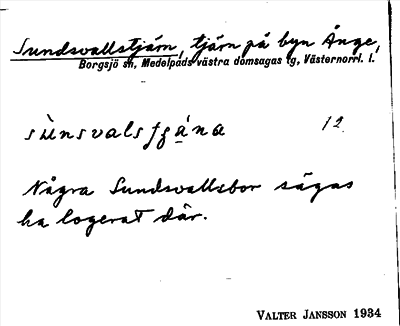 Sundsvallstjärn, tjärn på byn Ånge,
Borgsjö sn, Medelpads västra domsagas tg, Västernorrl. l.
sùnsvalsʃgána 12.
Några Sundsvallsbor sägas
ha logerat där.
VALTER JANSSON 1934